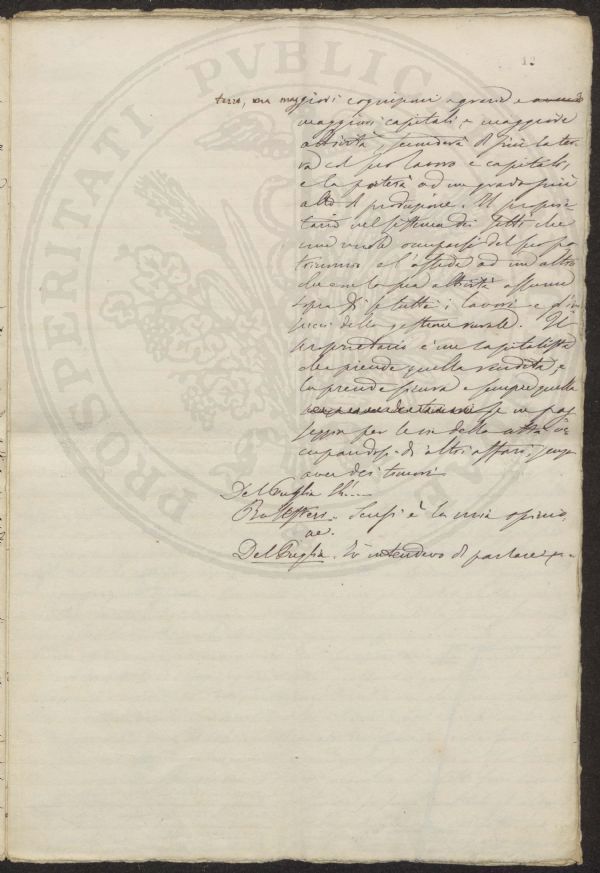 12
terzo, con maggiori cognizioni agrarie e
maggiori capitali, e maggiore
attività, fonderà di più la ter-
ra col suo lavoro e capitale,
e la porterà ad un grado più
alto di produzione. Il proprie-
tario nel sistema dei fitti che
non vuole occuparsi del suo pa-
trimonio e l'affida ad un altro
che con la sua attività assume
sopra di se tutti i lavori e
della gestione rurale. Il
proprietario è un capitalista
che prende quella rendita, e
la prende sicura e sempre quella
se ne pas-
seggia per le vie della città oc-
cupandosi di altri affari, senza
aver dei timori
Del Greglia Eh!...
Scusi è la mia opinio-
ne.
Del Greglia. Io intendevo di parlare
PROSPERITATI PVBLICAE